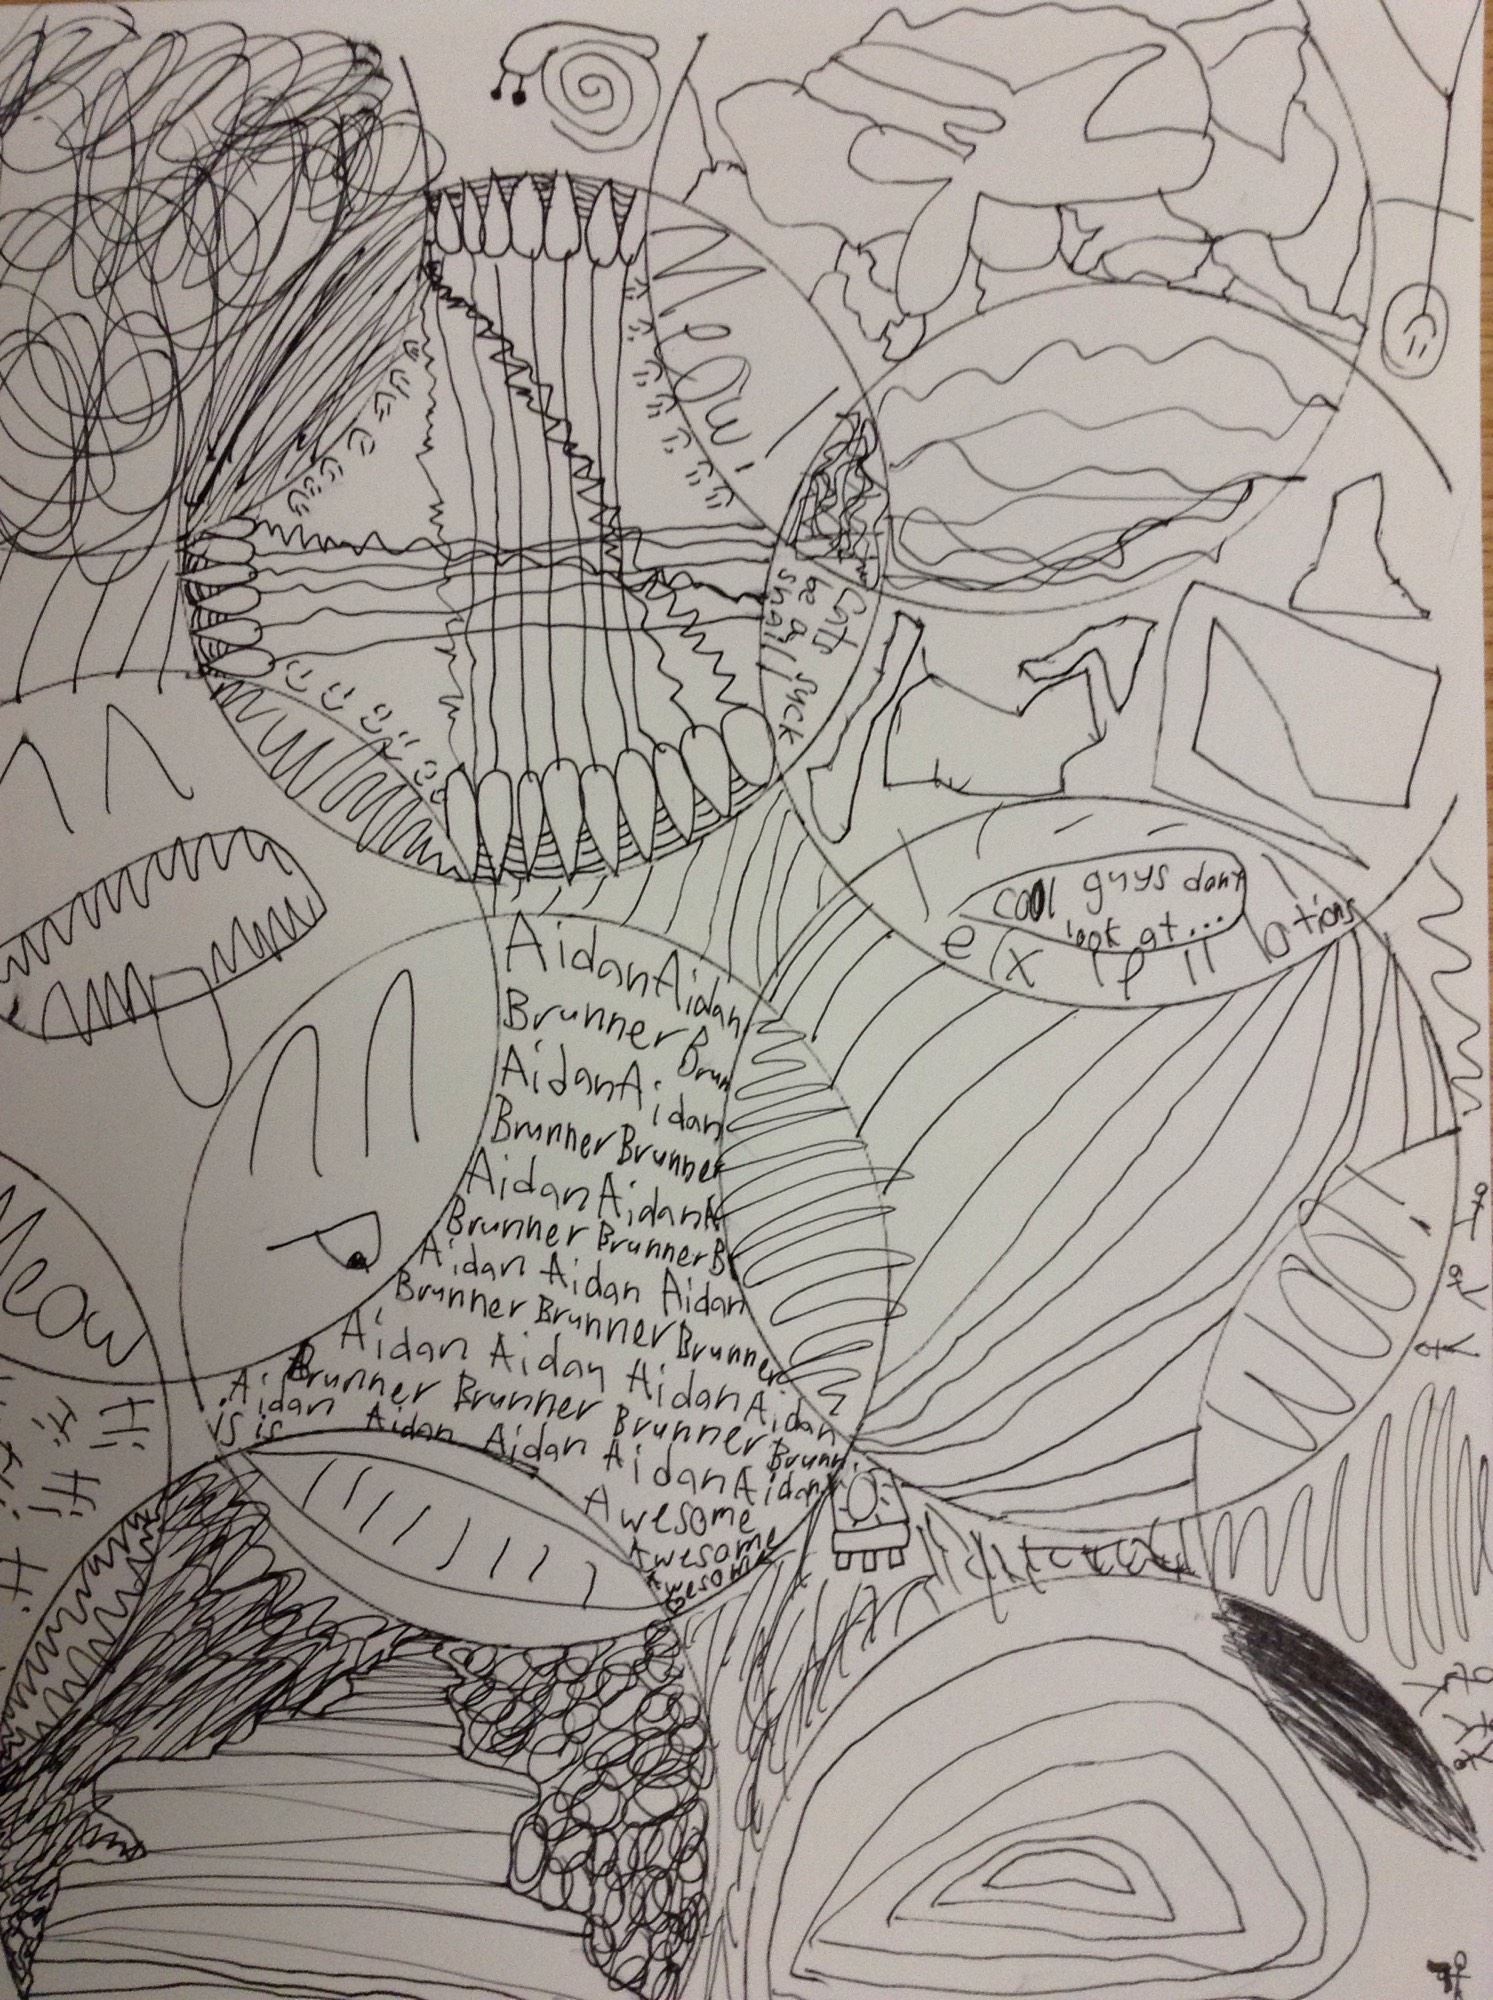 Meow!
Cats suck
be a
snail!
cool guys dont
look at...
e(x)plosions
Aidan Aidan
Brunner Brun
Aidan Aidan
Brunner Brunner
Aidan Aidan A
Brunner Brunner B
Aidan Aidan Aidan
Brunner Brunner Brunner
Aidan Aidan Aidan Aidan
Brunner Brunner Brunner Brunn
Aidan Aidan Aidan Aidan Aidan
is is
Awesome
Awesome
Awesome
Meow
Hi
Hi Hi
Hi
WOAX!